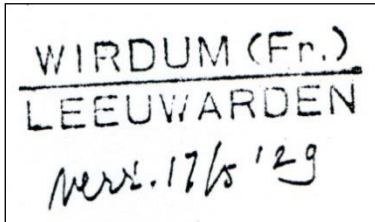 WIRDUM (Fr.)
LEEUWARDEN
verz. 17/5 '29